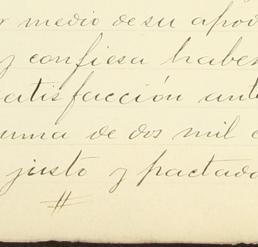 medio de su apod
y confiesa haber
satisfacción ant
suma de dos mil
justo y pactado
#